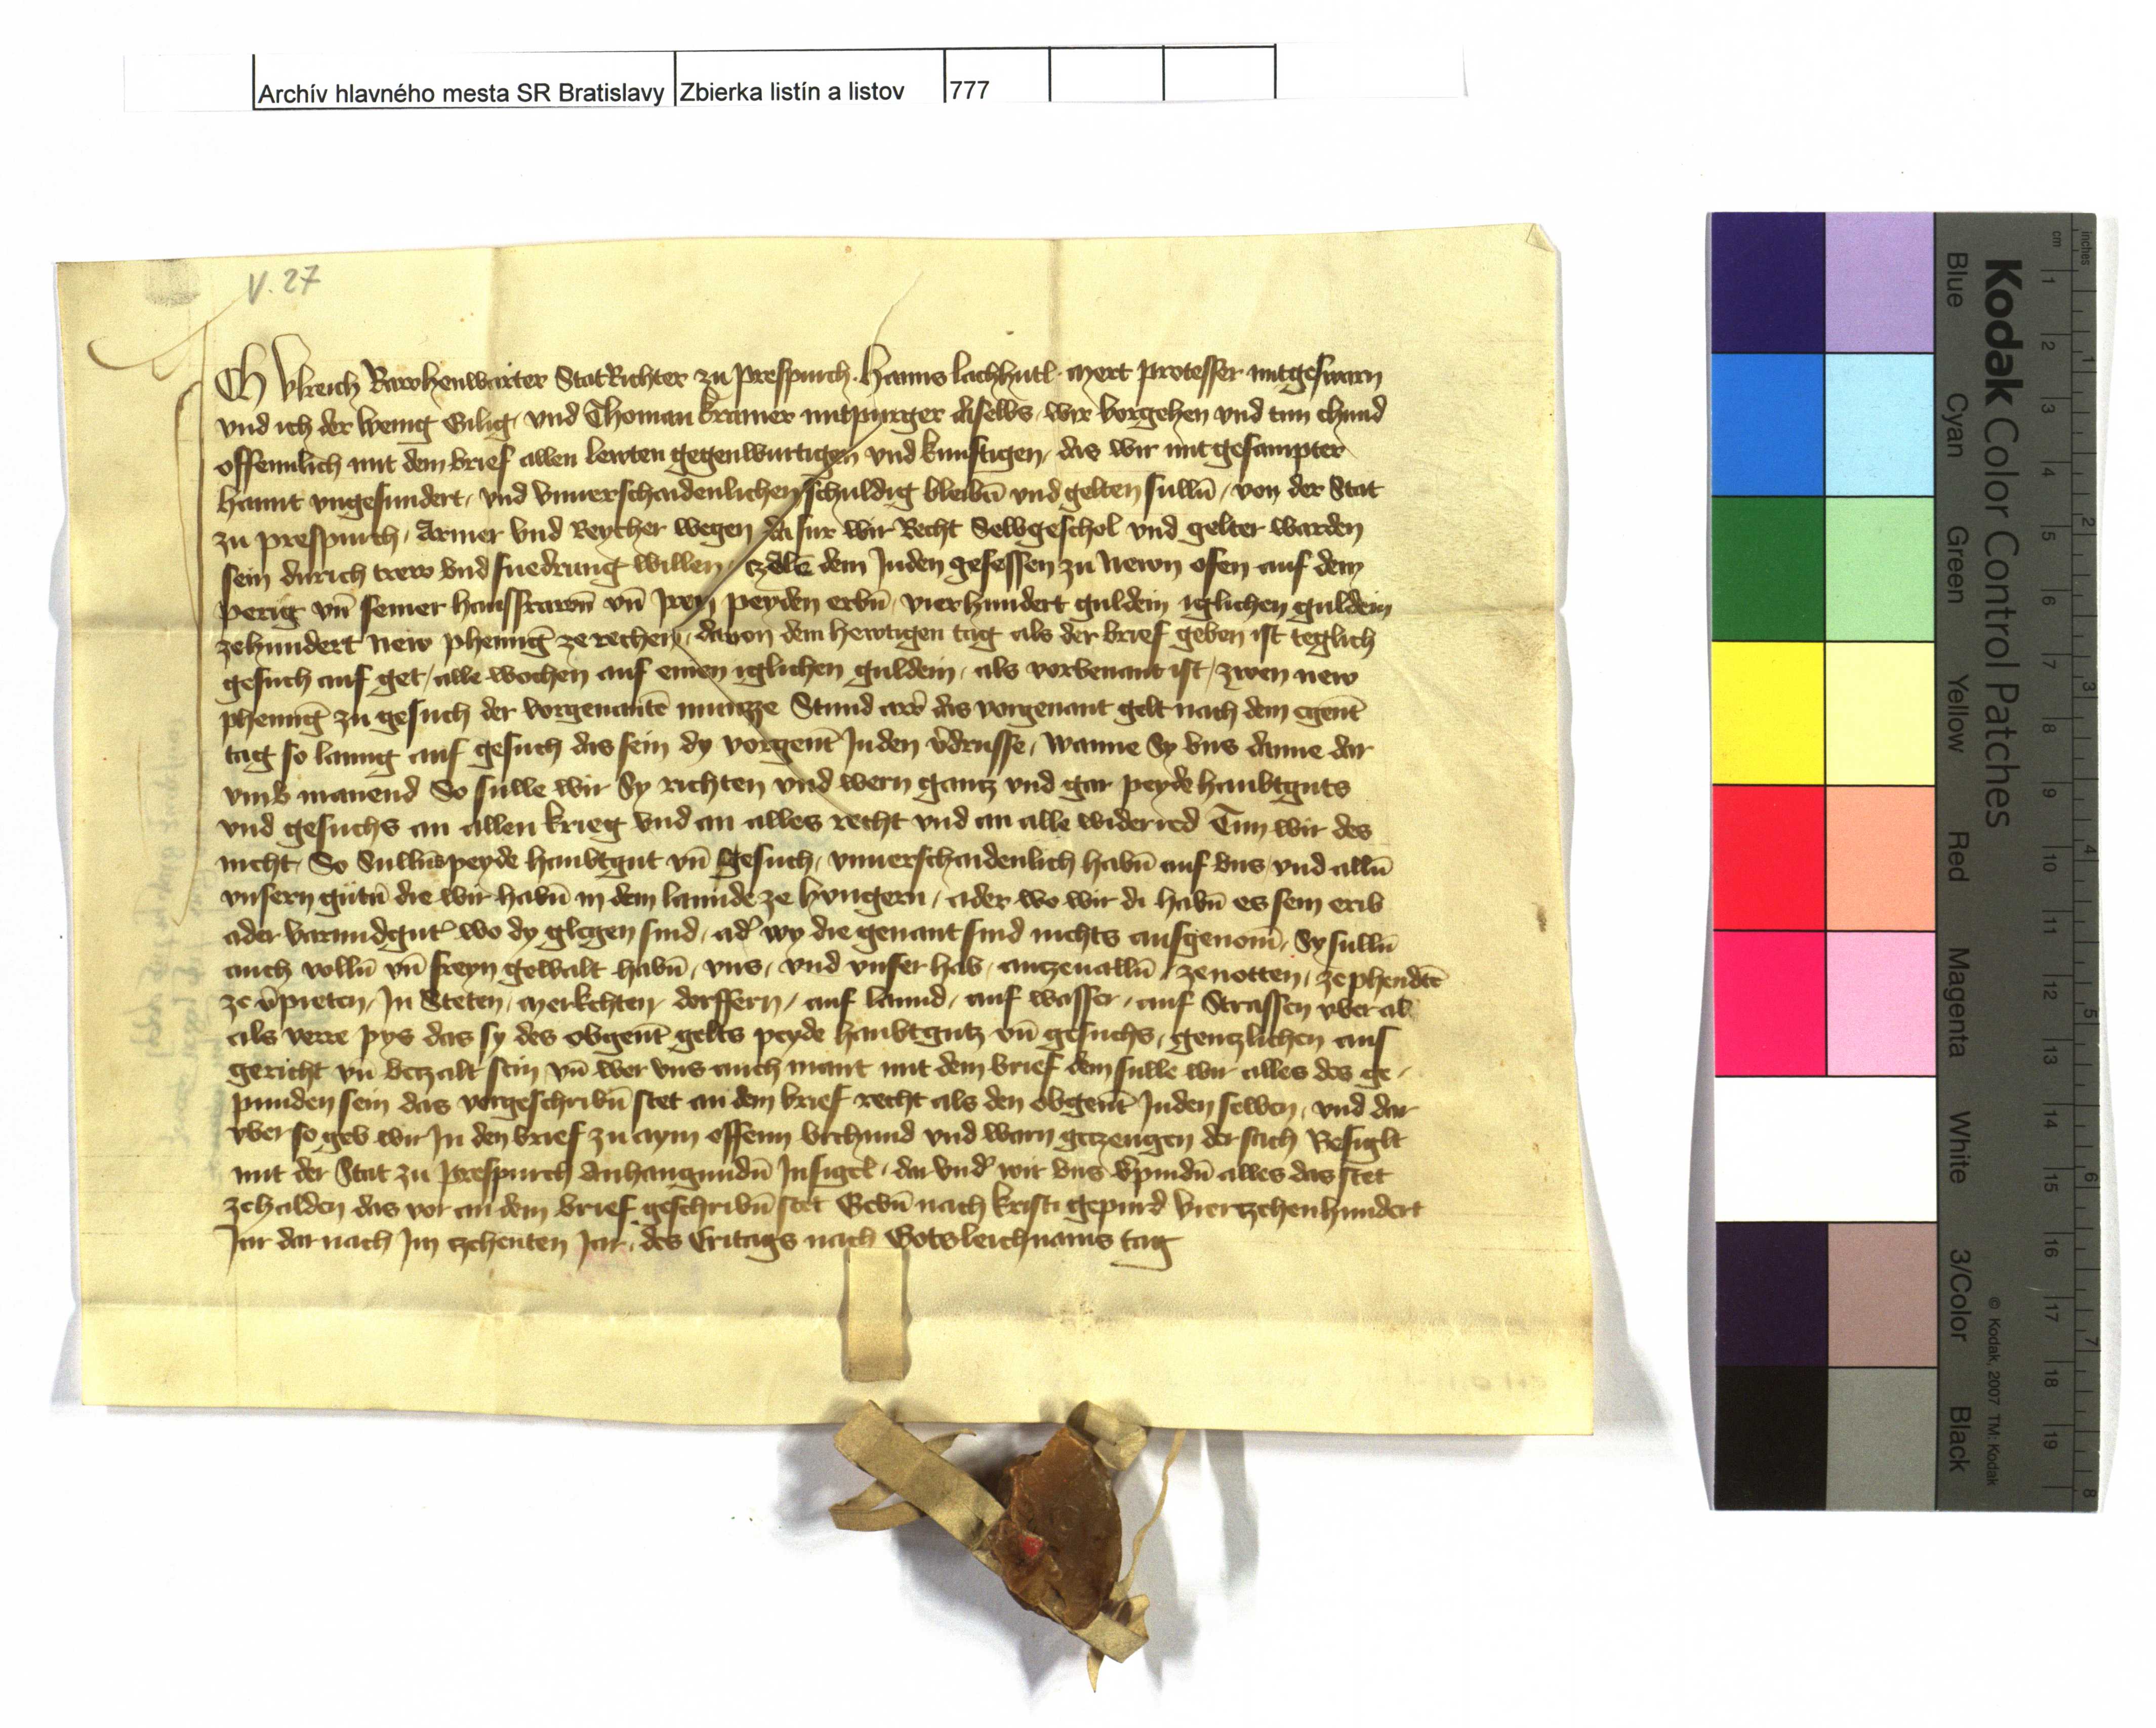 Archív hlavného mesta SR Bratislavy Zbierka listín a listov 777
V. 27
Ich Vlreich Rawhenwarter StatRichter zu prespurch. Hanns lachhutl. Mert protesser mitgesworn
vnd ich der wenig Gilig, vnd Thoman kramer mitpurger daselbs, wir vergehen vnd tun chund
offennlich mit dem brief allen lewten gegenwurtigen vnd kunftigen, das wir mit gesampter
hannt vngesundert, vnd vnuerschaidenlichen schuldig bleibn̄ vnd gelten sulln̄, von der Stat
zu prespurch, Armer vnd Reycher wegen da fur wir Recht Selbgeschol vnd gelter warden
sein durich trew vnd fuedrung willen, dem Juden gesessen zu Newn ofen auf dem
perig vn̄ seiner hausfrawn̄ vn̄ Iren peyden erbn̄, vierhundert guldein iglichen guldein
zehundert new phenniḡ ze rechen, dauon dem hewtigen tag als der brief geben ist teglich
gesuch auf get, alle wochen auf einen iglichen guldein, als vorbenant ist, zwen new
phenniḡ zu gesuch der vorgenantē munzze Stund aw̄ das vorgenant gelt nach dem egent̄
tag so lanng auf gesuch das sein dy vorgent̄ Juden v̄drusse, wanne Sy vns danne dar
vmb manend So sulle wir Sy richten vnd wern gantz vnd gar peyde haubtguts
vnd gesuchs an allen krieg vnd an alles recht vnd an alle widerred Tun wir des
nicht, So Sulln̄s peyde haubtgut vn̄ Gesuch, vnuerschaidenlich habn̄ auf vns, vnd alln̄
vnsern gutn̄ die wir habn̄ in dem lannde ze hvngern, ader wo wir di habn̄ es sein erib
ader varundgut̄ wo dy glegen sind, ad̄ wy die genant sind nichts ausgenom̄, Sy sulln̄
auch volln̄ vn̄ freyn gewalt habn̄, vns, vnd vnser hab, antzeualln̄, ze notten, ze phendē
ze v̄pieten, In Steten, merkchten, dorffern, auf lannd, auf wasser, auf Strassen vber al
als verre pys das sy des obgent̄ gelts peyde haubtgutz vn̄ gesuchs, gentzlichen aus
gericht vn̄ betzalt sein, vn̄ wer vns auch mant mit dem brief dem sulle wir alles des ge-
punden sein das vorgeschribn̄ stet an dem brief recht als den obgent̄ Juden selben, vnd dar
vber so geb wir In den brief zu aym offenn vrchund vnd warn getzeugen der sach Besiglt
mit der Stat zu prespurch Anhangundn̄ Insigel, dar vnd̄ wir vns v̄pindn̄ alles das stet
zehalden das vor an dem brief geschribn̄ stet Gebn̄ nach kristi gepurd viertzehenhundert
Jar dar nach Im tzehenten Jar, des Eritags nach Gotsleichnams tag
Kodak Color Control Patches
Blue Cyan Green Yellow Red Magenta White 3/Color Black
© Kodak, 2007 TM: Kodak
inches 1 2 3 4 5 6 7 8
cm 1 2 3 4 5 6 7 8 9 10 11 12 13 14 15 16 17 18 19